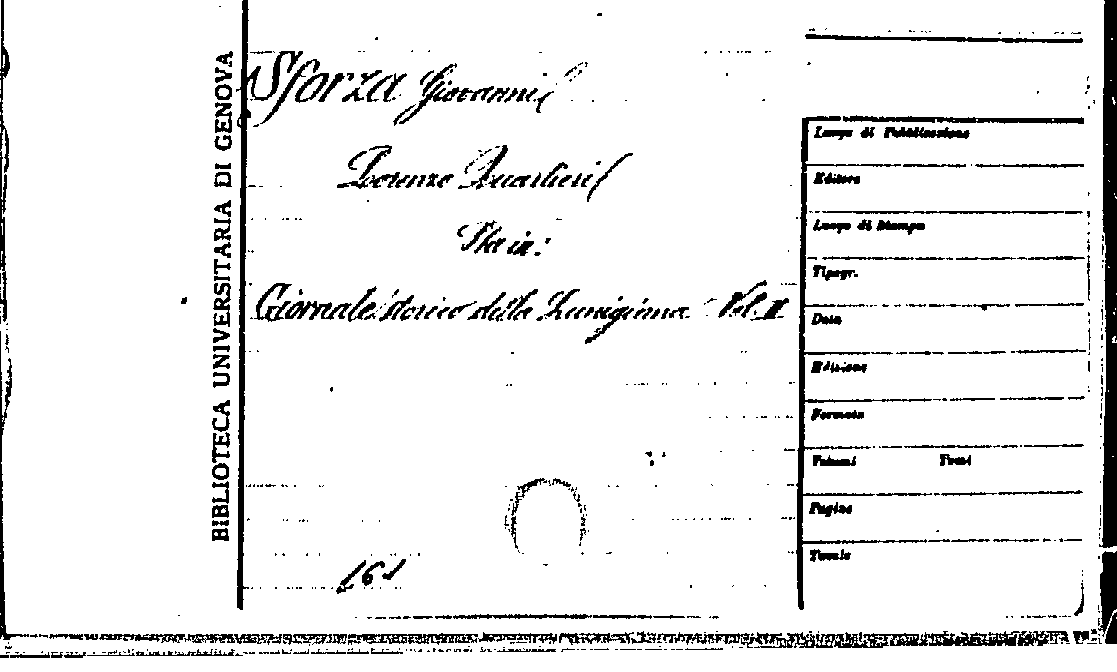 BIBLIOTECA UNIVERSITARIA DI GENOVA
Sforza Giovanni
Lorenzo Quartieri
Sta in:
Giornale storico della Lunigiana Vol. II
161
Luogo di Pubblicazione
Editore
Luogo di Stampa
Tipogr.
Data
Edizione
Formato
Volumi Tomi
Pagine
Tavole